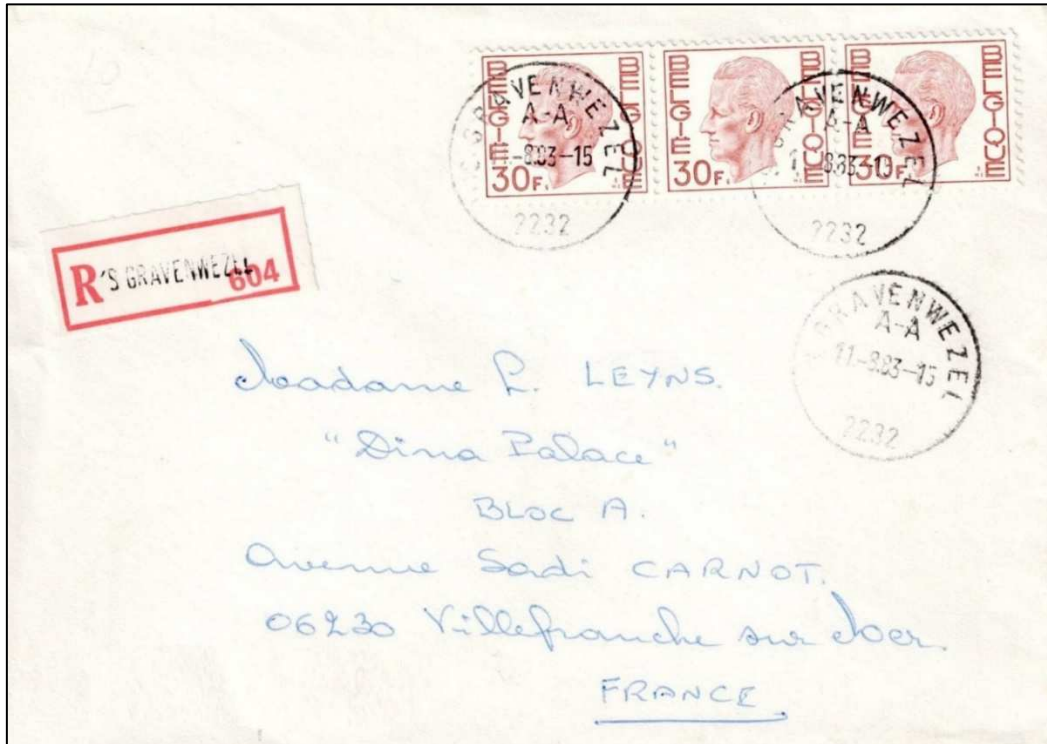 BELGIE 30F. BELGIQUE
BELGIE 30F. BELGIQUE
BELGIE 30F. BELGIQUE
'S GRAVENWEZEL
A-A
-8.83-15
2232
GRAVENWEZEL
A-A
1 -8.83-15
2232
R 'S GRAVENWEZEL 604
GRAVENWEZEL
A-A
11.-8.83-15
2232
Madame L. LEYNS.
"Dina Palace"
BLOC A.
Avenue Sadi CARNOT.
06230 Villefranche sur Mer.
FRANCE